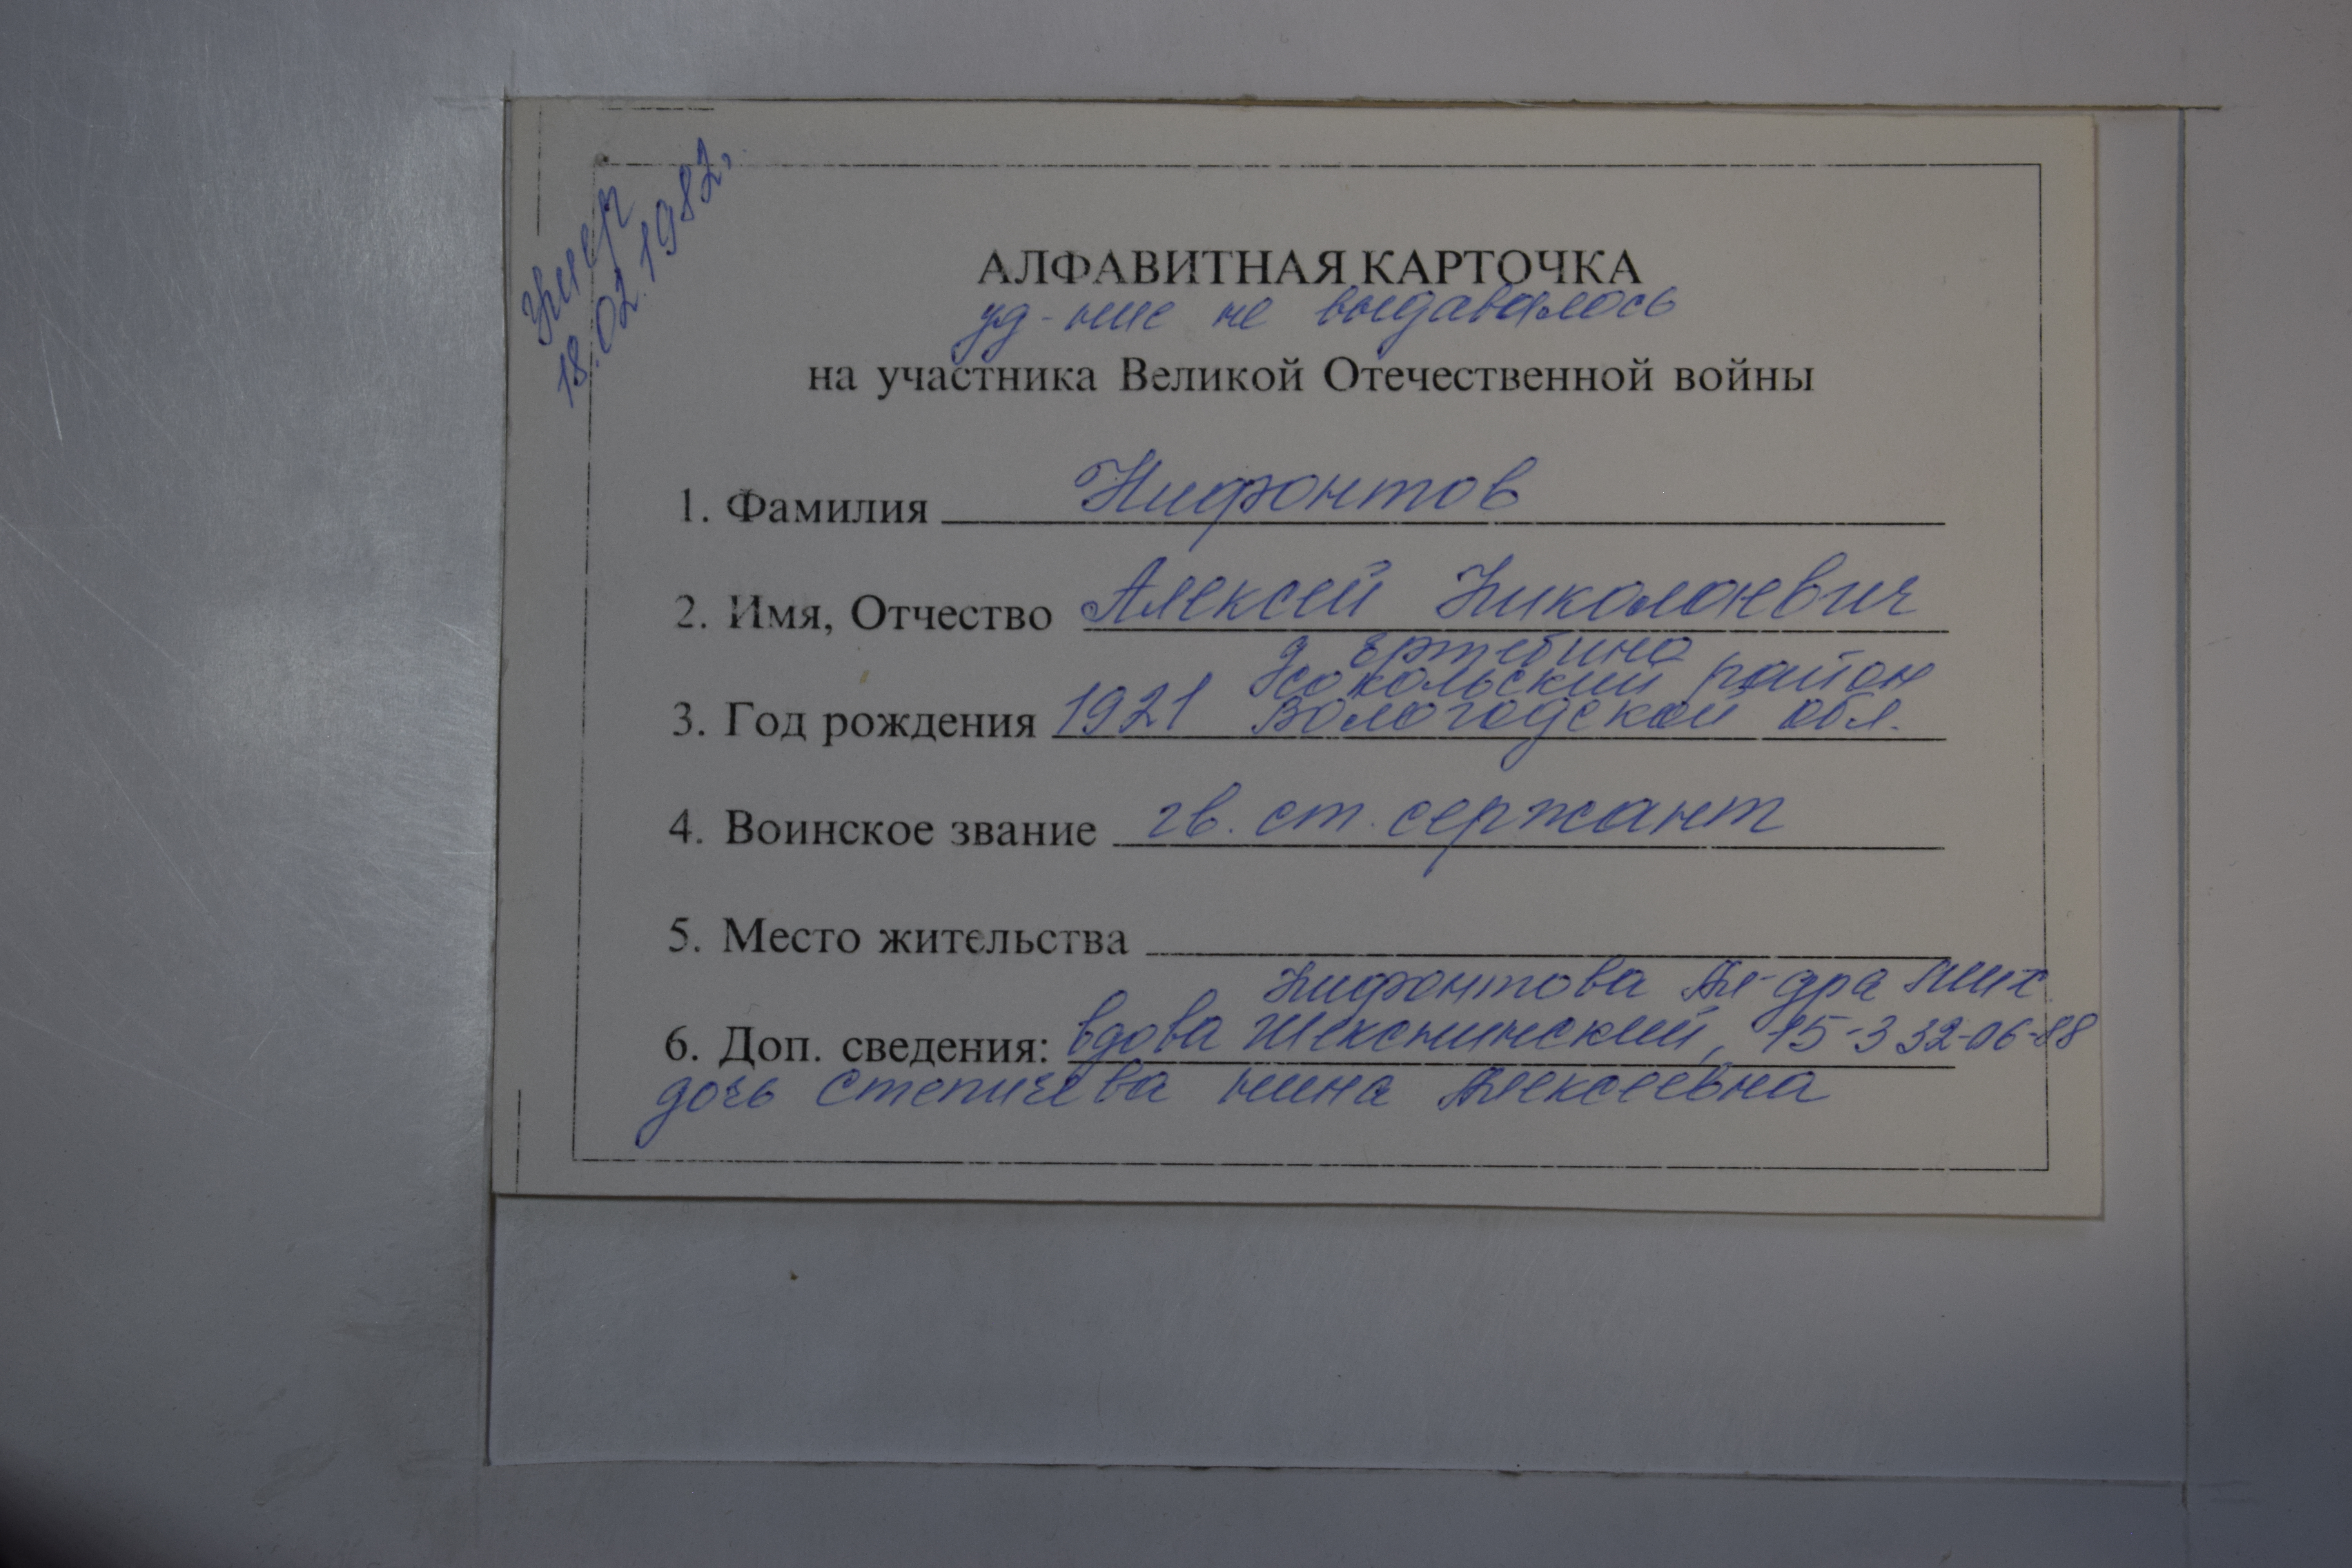 умер
18.02.1982,
АЛФАВИТНАЯ КАРТОЧКА
уд-ние не выдавалось
на участника Великой Отечественной войны
1. Фамилия Нифонтов
2. Имя, Отчество Алексей Николаевич
д Ертебино
Усокольский район
3. Год рождения 1921 Вологодской обл.
4. Воинское звание гв. ст. сержант
5. Место жительства
Нифонтова Ал-дра
6. Доп. сведения: вдова Шекснинский, 15-3 32-06-88
дочь Степичева Нина Алексеевна